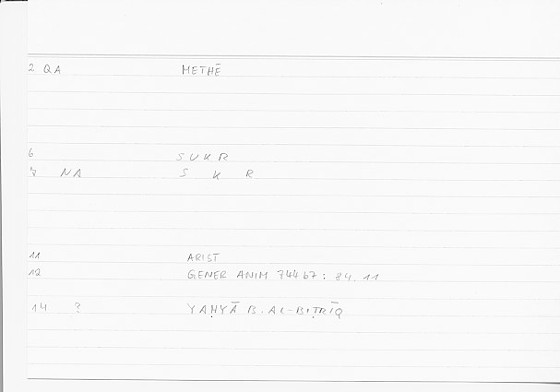 2 QA METHĒ
6 SUKR
7 NA S K R
11 ARIST
12 GENER ANIM 744 b7 : 84.11
14 ? YAḤYĀ B. AL-BIṬRĪQ